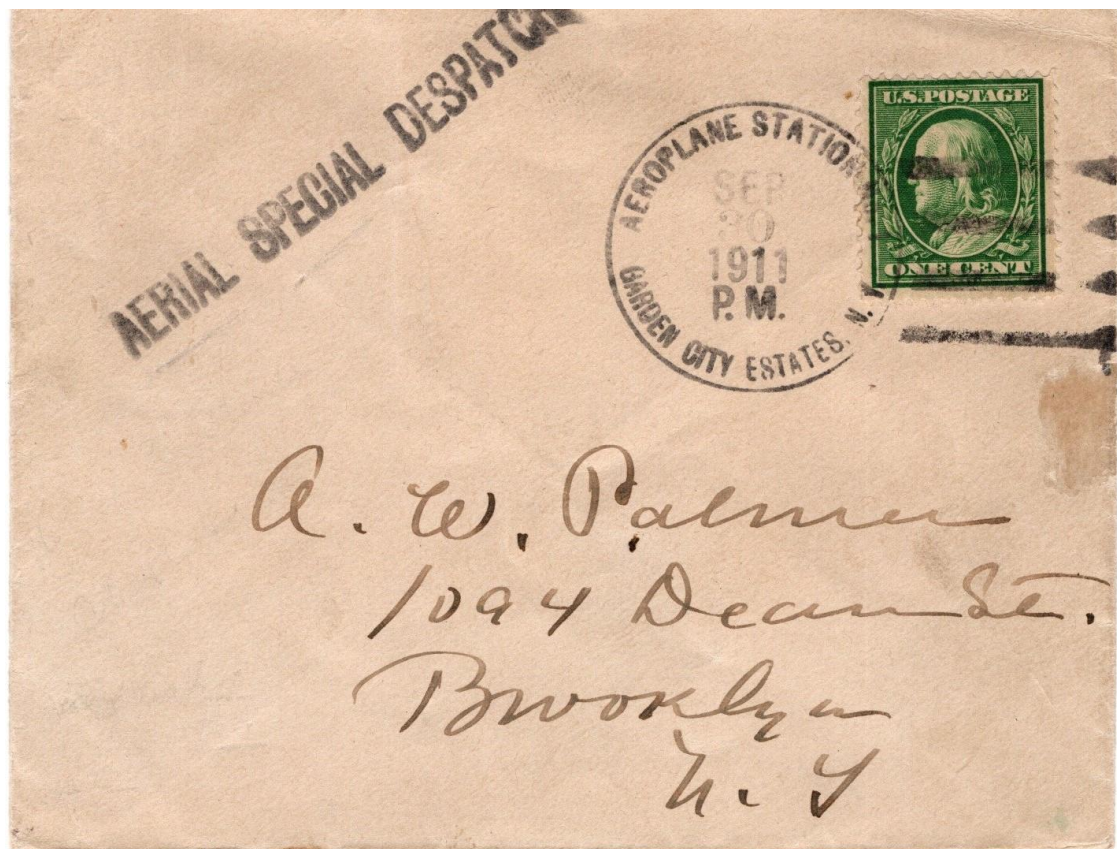 AERIAL SPECIAL DESPATCH
AEROPLANE STATION
SEP
30
1911
P. M.
GARDEN CITY ESTATES, N.
U.S. POSTAGE
ONE CENT
A. W. Palmer
1094 Dean St.
Brooklyn
N. Y